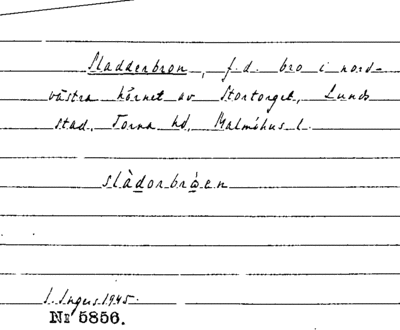 Sladderbron, f.d. bro i nord-
västra hörnet av Stortorget, Lunds
stad, Torna hd, Malmöhus l.
slàdorbrǿen
I. Ingers 1945.
No 5856.